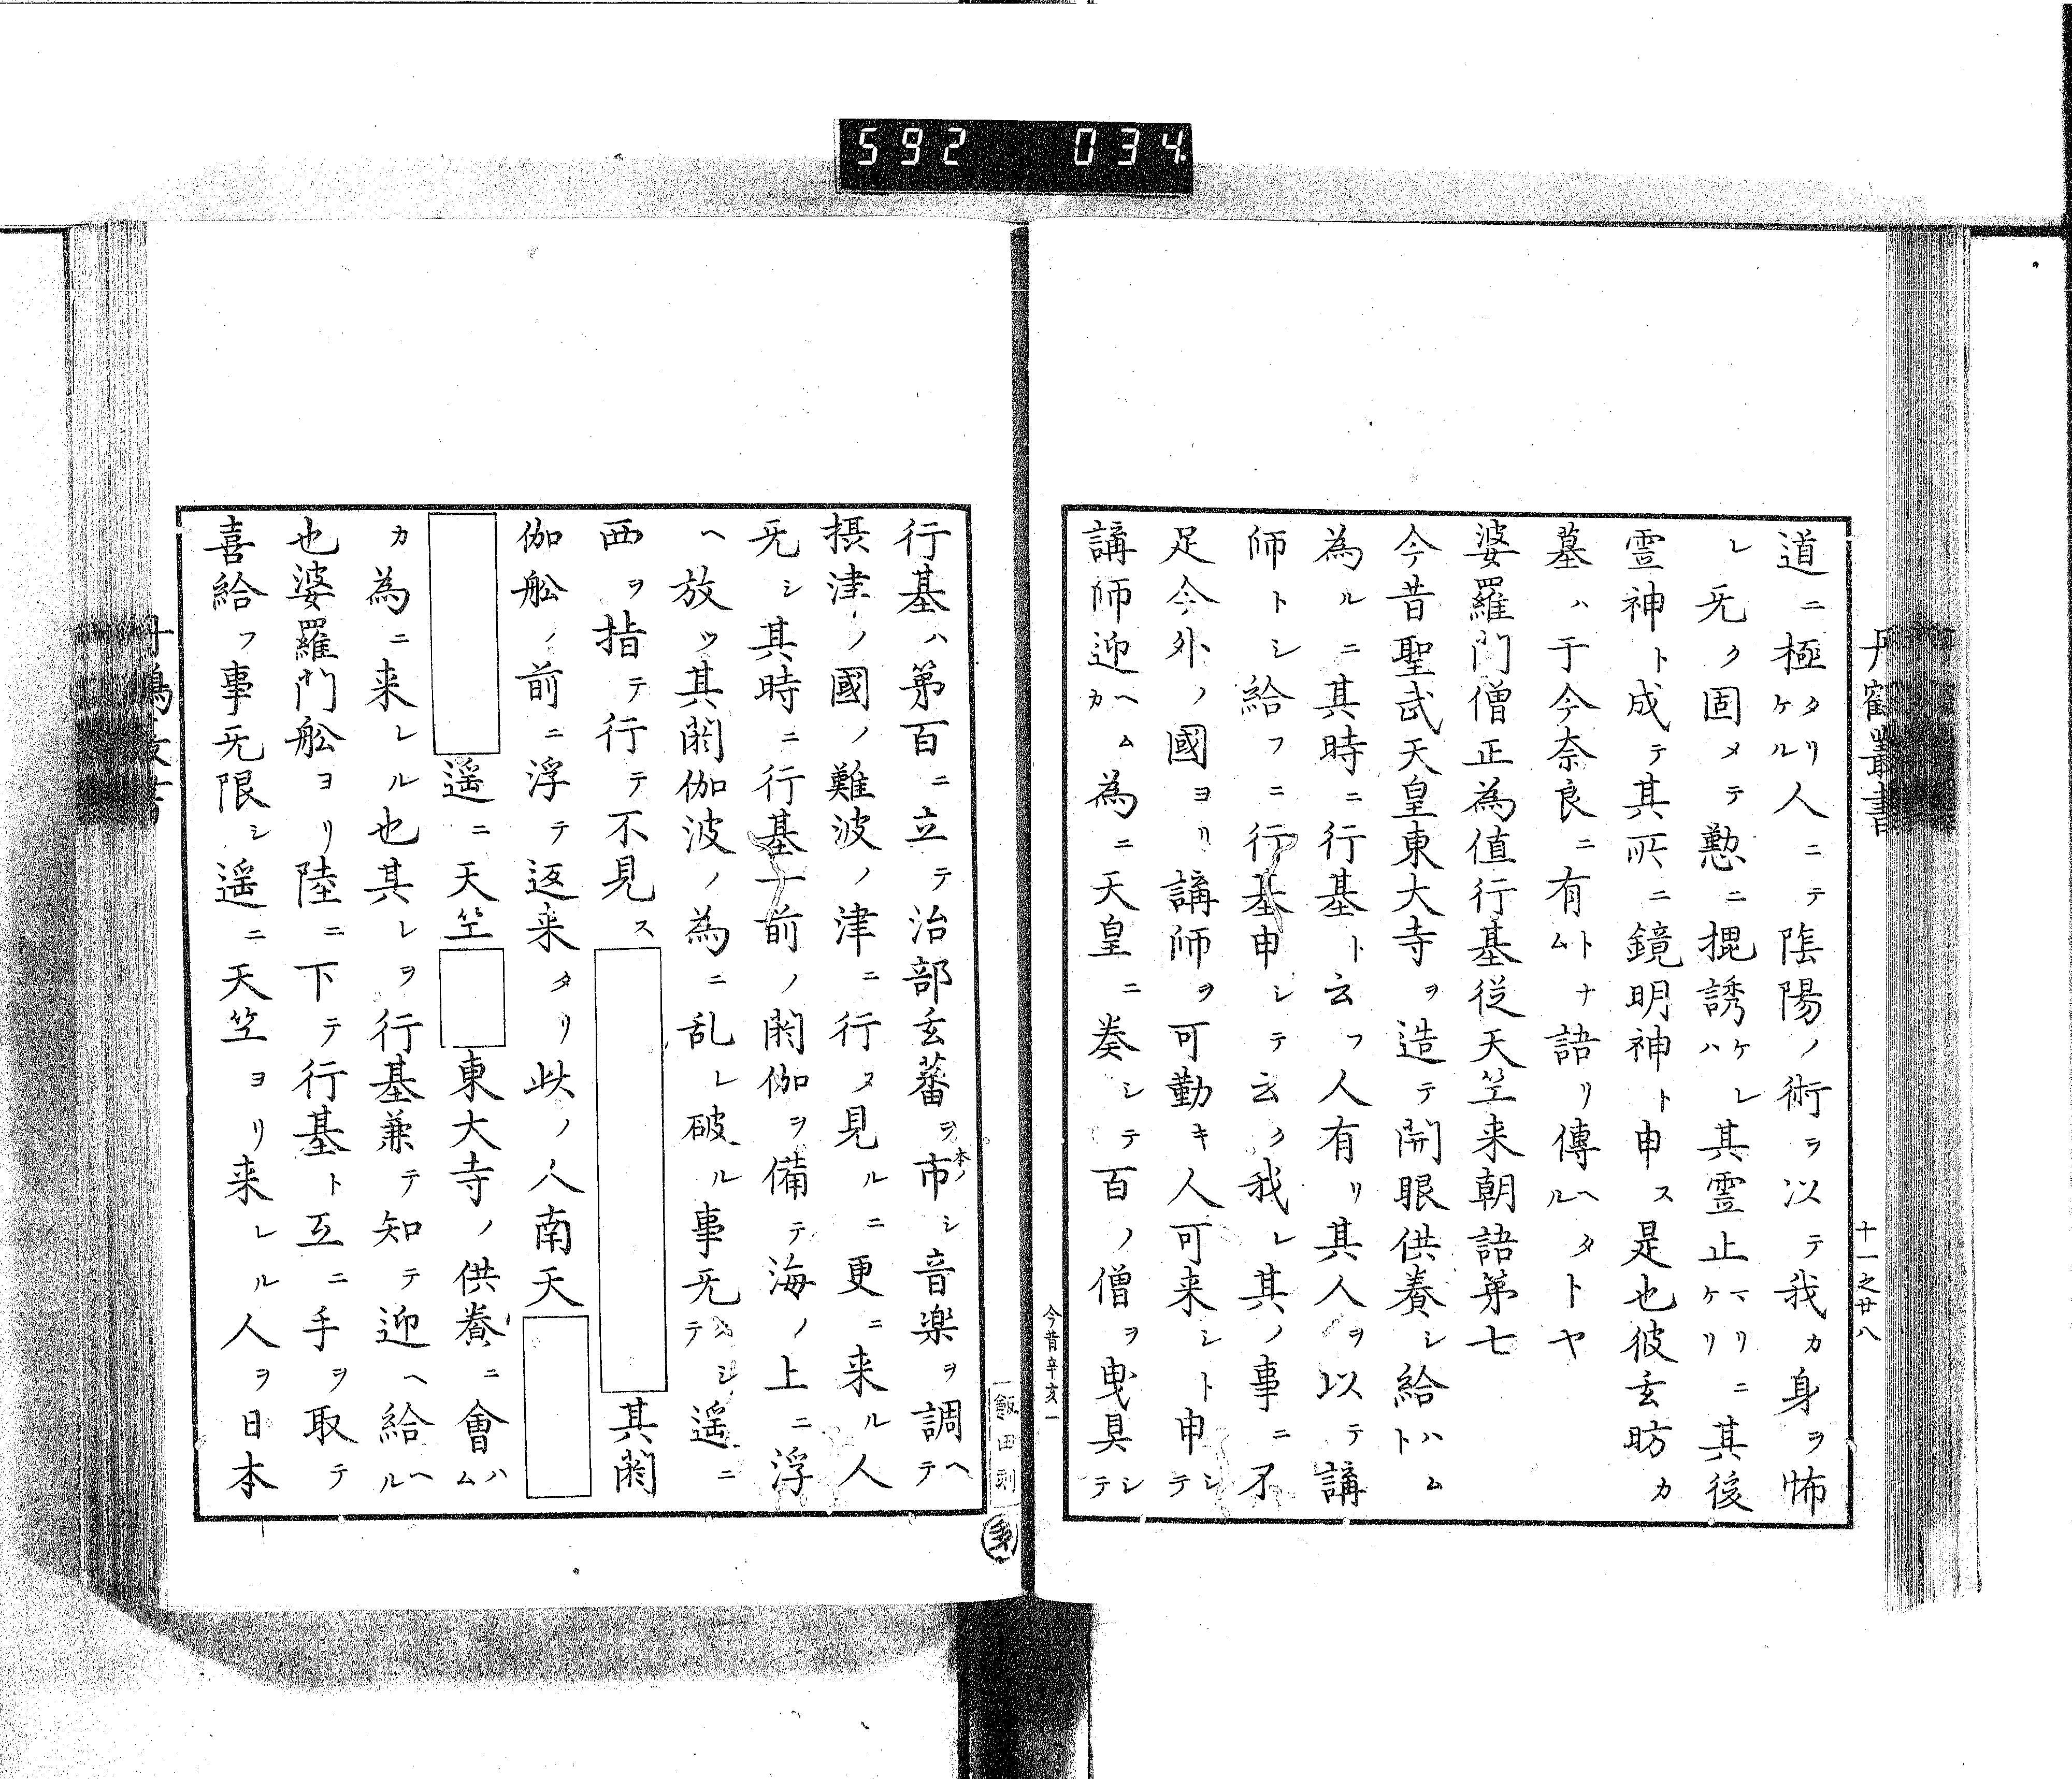 592 034
丹鶴叢書
十一之廿八
道ニ極タリケル人ニテ陰陽ノ術ヲ以テ我カ身ヲ怖
レ旡ク固メテ懃ニ掍誘ケレハ其霊止マリニケリ其後
霊神ト成テ其所ニ鏡明神ト申ス是也彼玄昉カ
墓ハ于今奈良ニ有トナム語リ傳ヘタルトヤ
婆羅門僧正為値行基従天竺来朝語第七
今昔聖武天皇東大寺ヲ造テ開眼供養シ給ハムト
為ルニ其時ニ行基ト云フ人有リ其人ヲ以テ講
師トシ給フニ行基申シテ云ク我レ其ノ事ニ不
足今外ノ國ヨリ講師ヲ可勤キ人可来シト申シテ
講師迎ヘムカ為ニ天皇ニ奏シテ百ノ僧ヲ曳具シテ
今昔辛亥一
飯田刻
行基ハ第百ニ立テ治部玄蕃ヲ市本ノシ音楽ヲ調ヘテ
摂津ノ國ノ難波ノ津ニ行タ見ルニ更ニ来ル人
旡シ其時ニ行基一前ノ閼伽ヲ備テ海ノ上ニ浮
ヘ放ツ其閼伽波ノ為ニ乱レ破ル事旡シテ遥ニ
西ヲ指テ行テ不見ス其閼
伽舩ノ前ニ浮テ返来タリ此ノ人南天
遥ニ天竺東大寺ノ供養ニ會ハム
カ為ニ来レル也其レヲ行基兼テ知テ迎ヘ給ヘル
也婆羅門舩ヨリ陸ニ下テ行基ト互ニ手ヲ取テ
喜給フ事旡限シ遥ニ天竺ヨリ来レル人ヲ日本